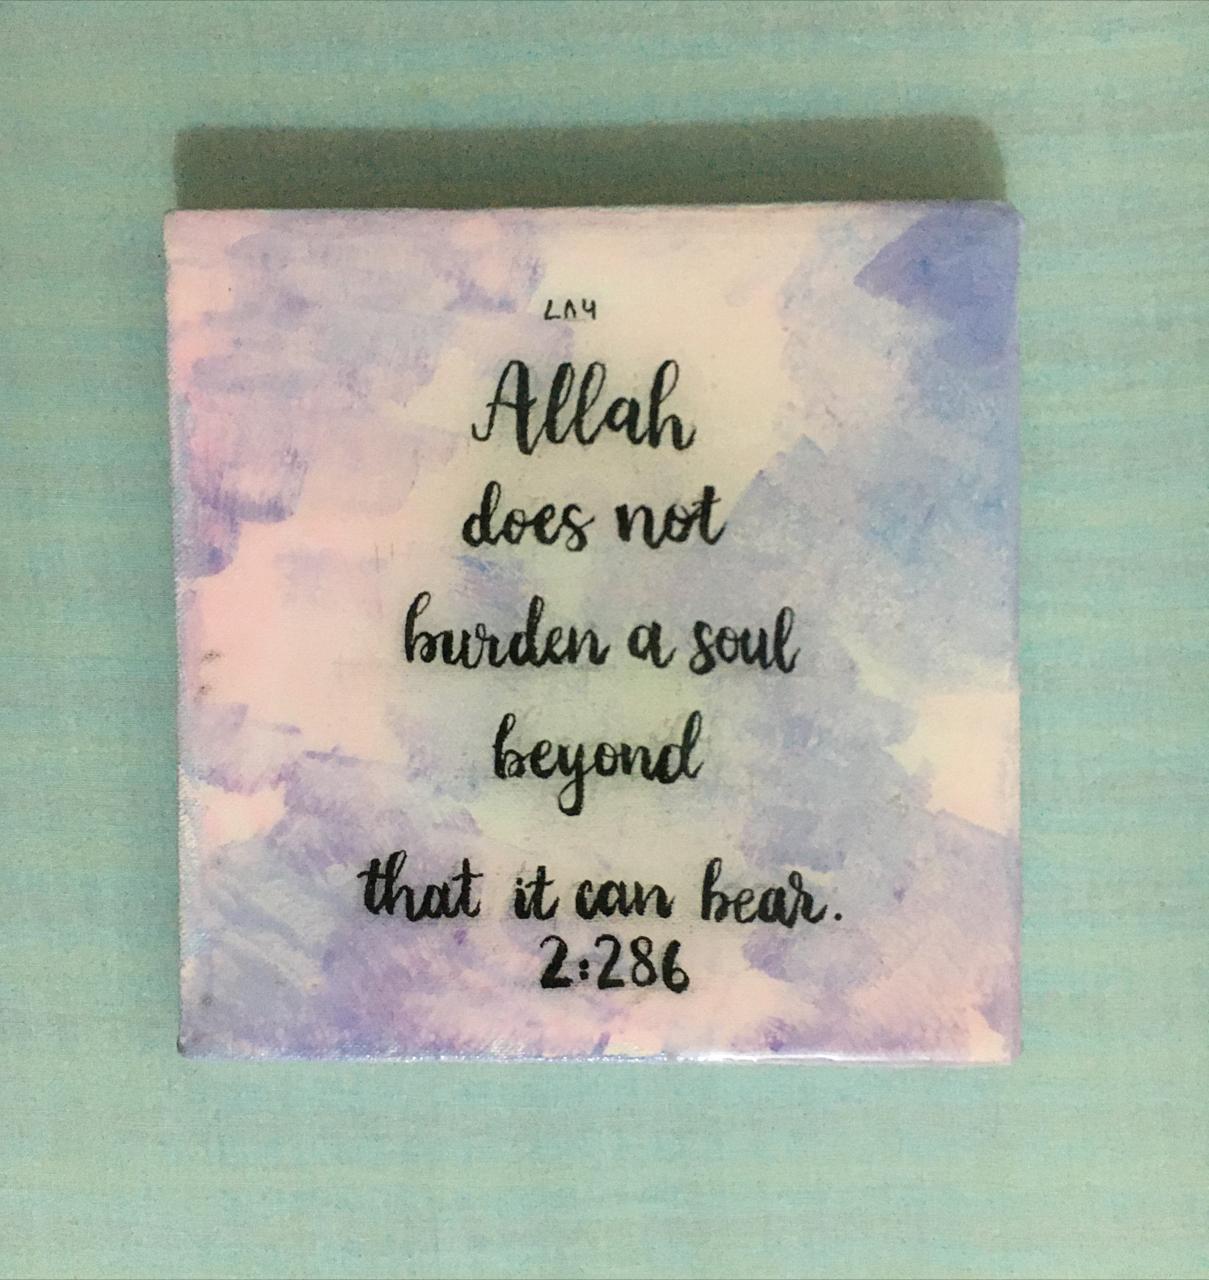 ۷۸۶
Allah
does not
burden a soul
beyond
that it can bear.
2:286